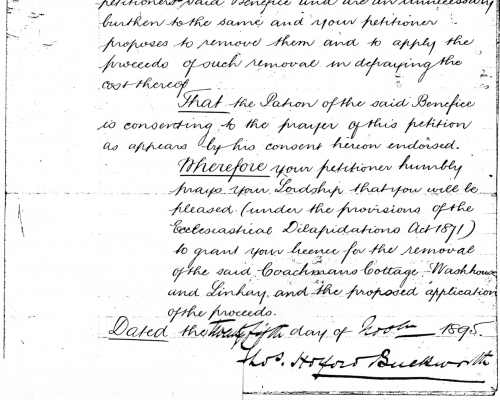 petitioners said Benefice and are an unnecessary
burthen to the same and your petitioner
proposes to remove them and to apply the
proceeds of such removal in defraying the
cost thereof
That the Patron of the said Benefice
is consenting to the prayer of this petition
as appears by his consent hereon endorsed.
Wherefore your petitioner humbly
prays your Lordship that you will be
pleased (under the provisions of the
Ecclesiastical Dilapidations Act 1871)
to grant your licence for the removal
of the said Coachmans Cottage Washhouse
and Linhay and the proposed application
of the proceeds.
Dated the twenty fifth day of 1895.
Thos. Holford Buckworth